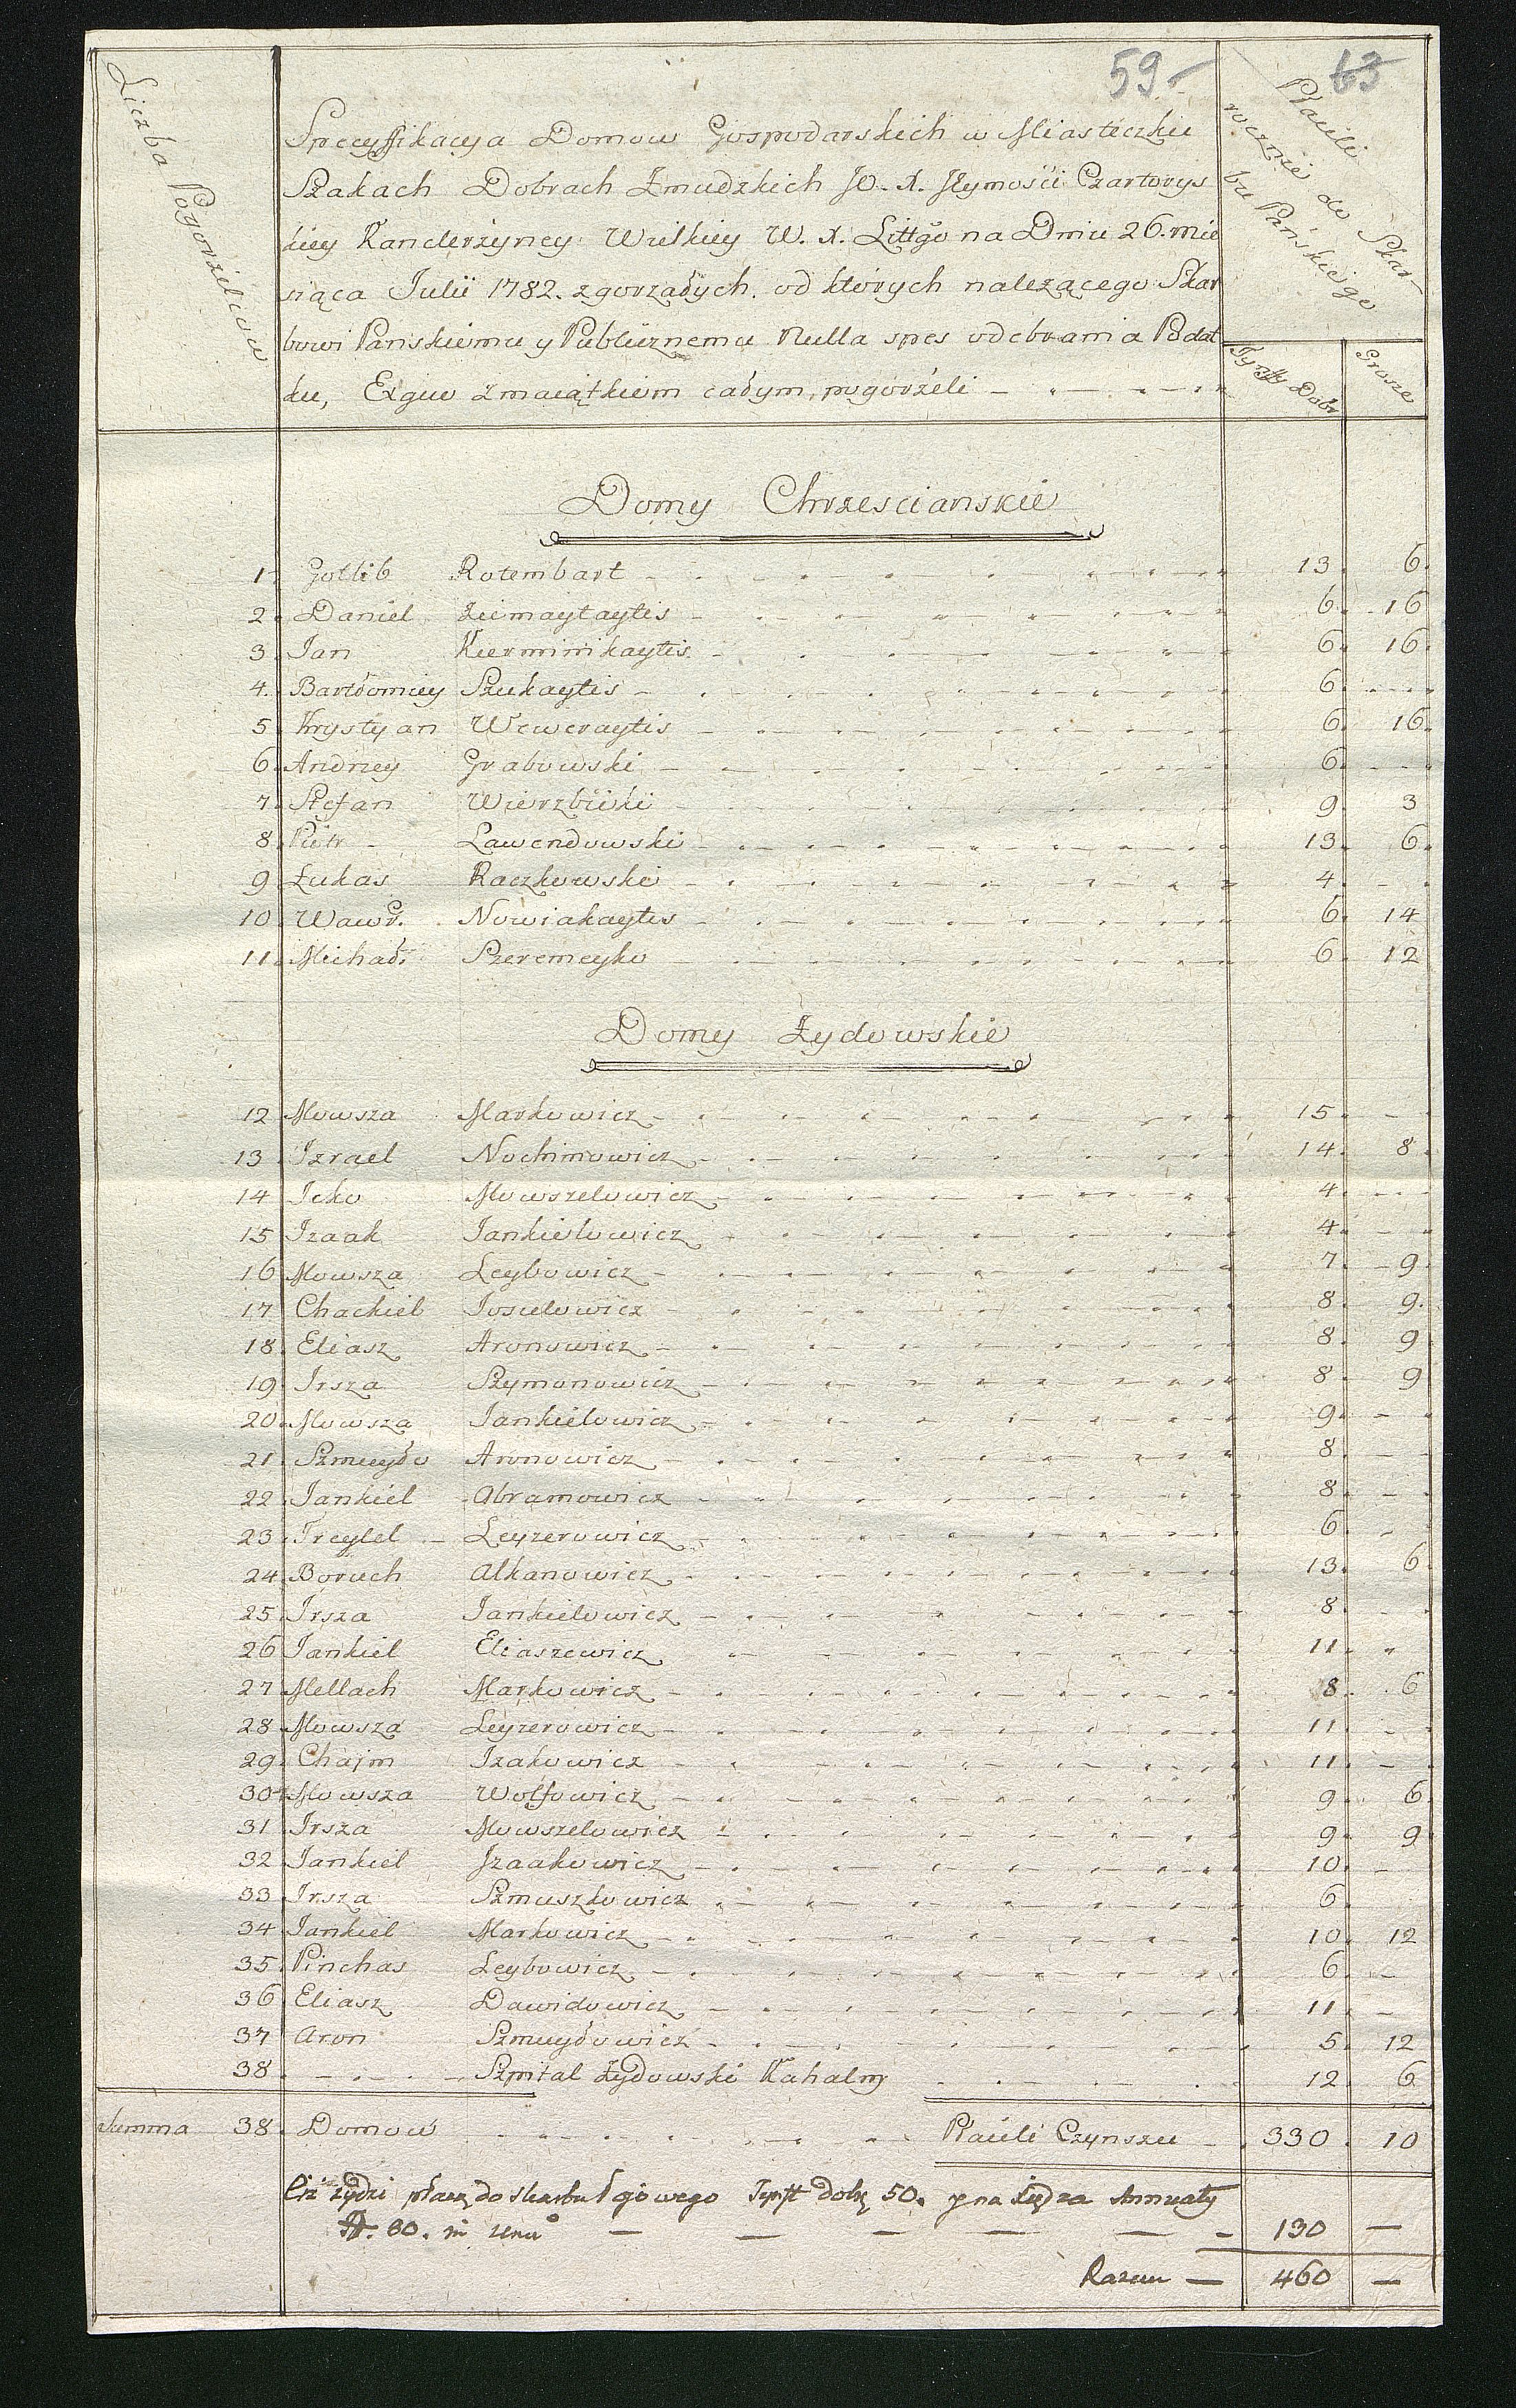 59-
63
Liczba Pogorzelcow
Specyfikacya Domow Gospodarskich w Miasteczku
Szakach Dobrach Zmudzkich JO. X. Jeymosci Czartorys
kiey Kanclerzyney Wielkiey W. X. Littgo na Dniu 26. mie
siąca Julii 1782. zgorzałych. od ktorych nalezącego Skar
bowi Panskiemu y Publicznemu Nulla spes odebrania Podat
ku, Ex quo z maiątkiem całym, pogorzeli
Płacili
rocznie do Skar-
bu Panskiego
Tynffy Dobr
Grosze
Domy Chrzescianskie
1 Gotlib Rotembart 13 6
2 Daniel Ziemaytaytis 6 16
3 Jan Kierminikaytis 6 16
4 Bartłomiey Szukaytis 6
5 Krystyan Weweraytis 6 16
6 Andrzey Grabowski 6
7 Stefan Wierzbicki 9 3
8 Piotr Lawendowski 13 6
9 Łukas Raczkowski 4
10 Wawr. Nowiakaytis 6 14
11 Michał. Szeremeyko 6 12
Domy Żydowskie
12 Mowsza Markowicz 15
13 Izrael Nochimowicz 14 8
14 Icko Mowszelowicz 4
15 Izaak Jankielowicz 4
16 Mowsza Leybowicz 7 9
17 Chackiel Joselowicz 8 9
18 Eliasz Aronowicz 8 9
19 Irsza Szymonowicz 8 9
20 Mowsza Jankielowicz 9
21 Szmuyło Aronowicz 8
22 Jankiel Abramowicz 8
23 Treytel Leyzerowicz 6
24 Boruch Alkanowicz 13 6
25 Irsza Jankielowicz 8
26 Jankiel Eliaszewicz 11
27 Mellach Markowicz 8 6
28 Mowsza Leyzerowicz 11
29 Chaim Izakowicz 11
30 Mowsza Wolfowicz 9 6
31 Irsza Mowszelowicz 9 9
32 Jankiel Izaakowicz 10
33 Irsza Szmuszkowicz 6
34 Jankiel Markowicz 10 12
35 Pinchas Leybowicz 6
36 Eliasz Dawidowicz 11
37 Aron Szmuyłowicz 5 12
38 Szpital Żydowski Kahalny 12 6
Summa 38 Domow Płacili Czynszu 330 10
Ciż żydzi płacą do Skarbu Tynff dobrę 50. y na Xiędza Annuaty
80. in 130 —
Razem — 460 —